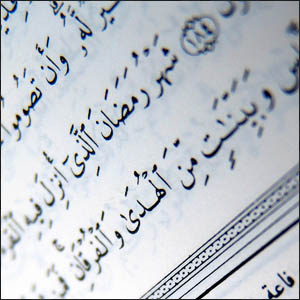 لَّهُۥ وَأَن تَصُومُوا۟
١٨٤ شَهْرُ رَمَضَانَ ٱلَّذِىٓ أُنزِلَ فِيهِ ٱلْقُر
وَبَيِّنَٰتٍ مِّنَ ٱلْهُدَىٰ وَٱلْفُرْقَانِ ۚ فَمَن